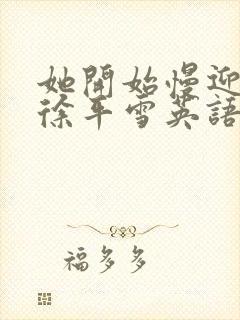 她開始慢迎
徐平雪英語
福多多